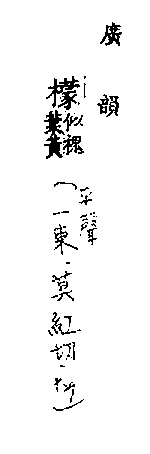 廣韻
檬似槐葉黃
(平聲
一東.莫紅切.)